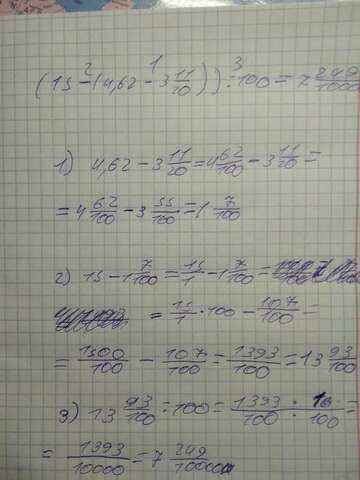 (15-(4,62-3 11/20)):100=7 249/1000
1 2 3
1) 4,62-3 11/20=4 62/100-3 11/20=
=4 62/100-3 55/100=1 7/100
2) 15-1 7/100=15/1-1 7/100=
=15/1·100-107/100=
=1500/100-107/100=1393/100=13 93/100
3) 13 93/100:100=1393/100:10/100=
=1393/10000=7 249/10000